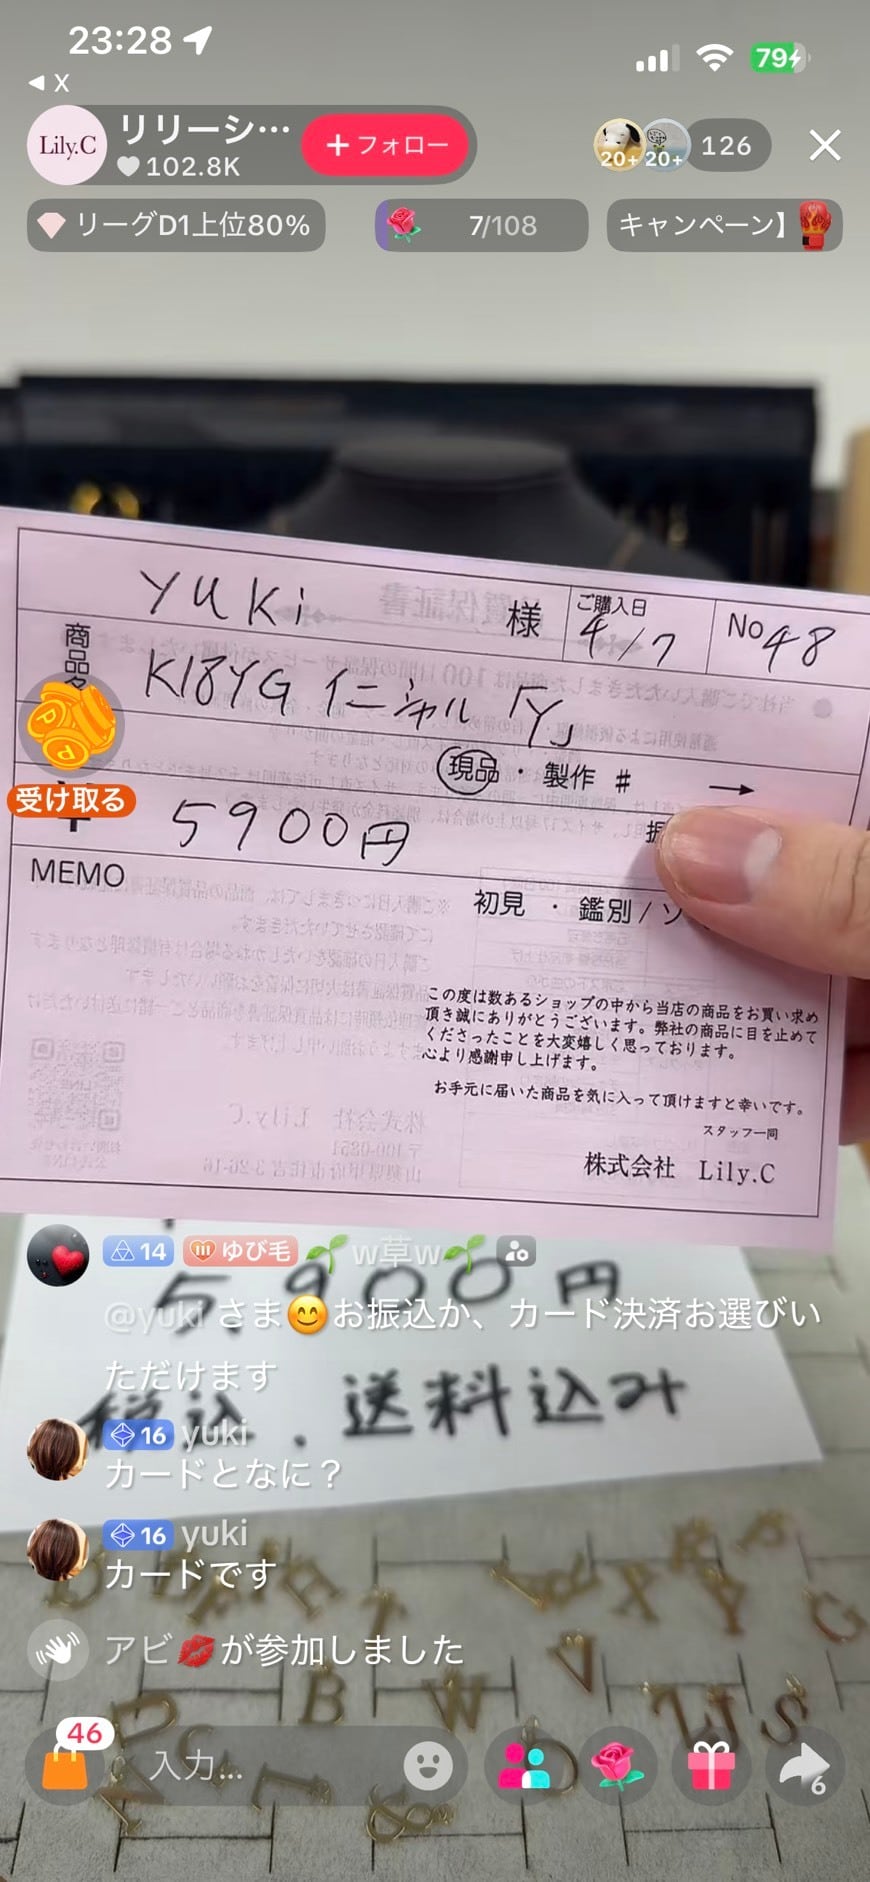 23:28
79
X
Lily.C
リリーシ…
102.8K
フォロー
20+
20+
126
リーグD1上位80%
7/108
キャンペーン】
YUKi 様
ご購入日
4/7
No 48
商品名
K18YG イニシャル「Y」
現品・製作 #
受け取る
¥
5900円
振
MEMO
初見 ・ 鑑別 / ソ
この度は数あるショップの中から当店の商品をお買い求め
頂き誠にありがとうございます。弊社の商品に目を止めて
くださったことを大変嬉しく思っております。
心より感謝申し上げます。
お手元に届いた商品を気に入って頂けますと幸いです。
スタッフ一同
株式会社 Lily.C
14 ゆび毛 w草w
5,900円
@yuki さま😊お振込か、カード決済お選びい
ただけます
税込、送料込み
16 yuki
カードとなに？
16 yuki
カードです
アビ💋が参加しました
46
入力...
6